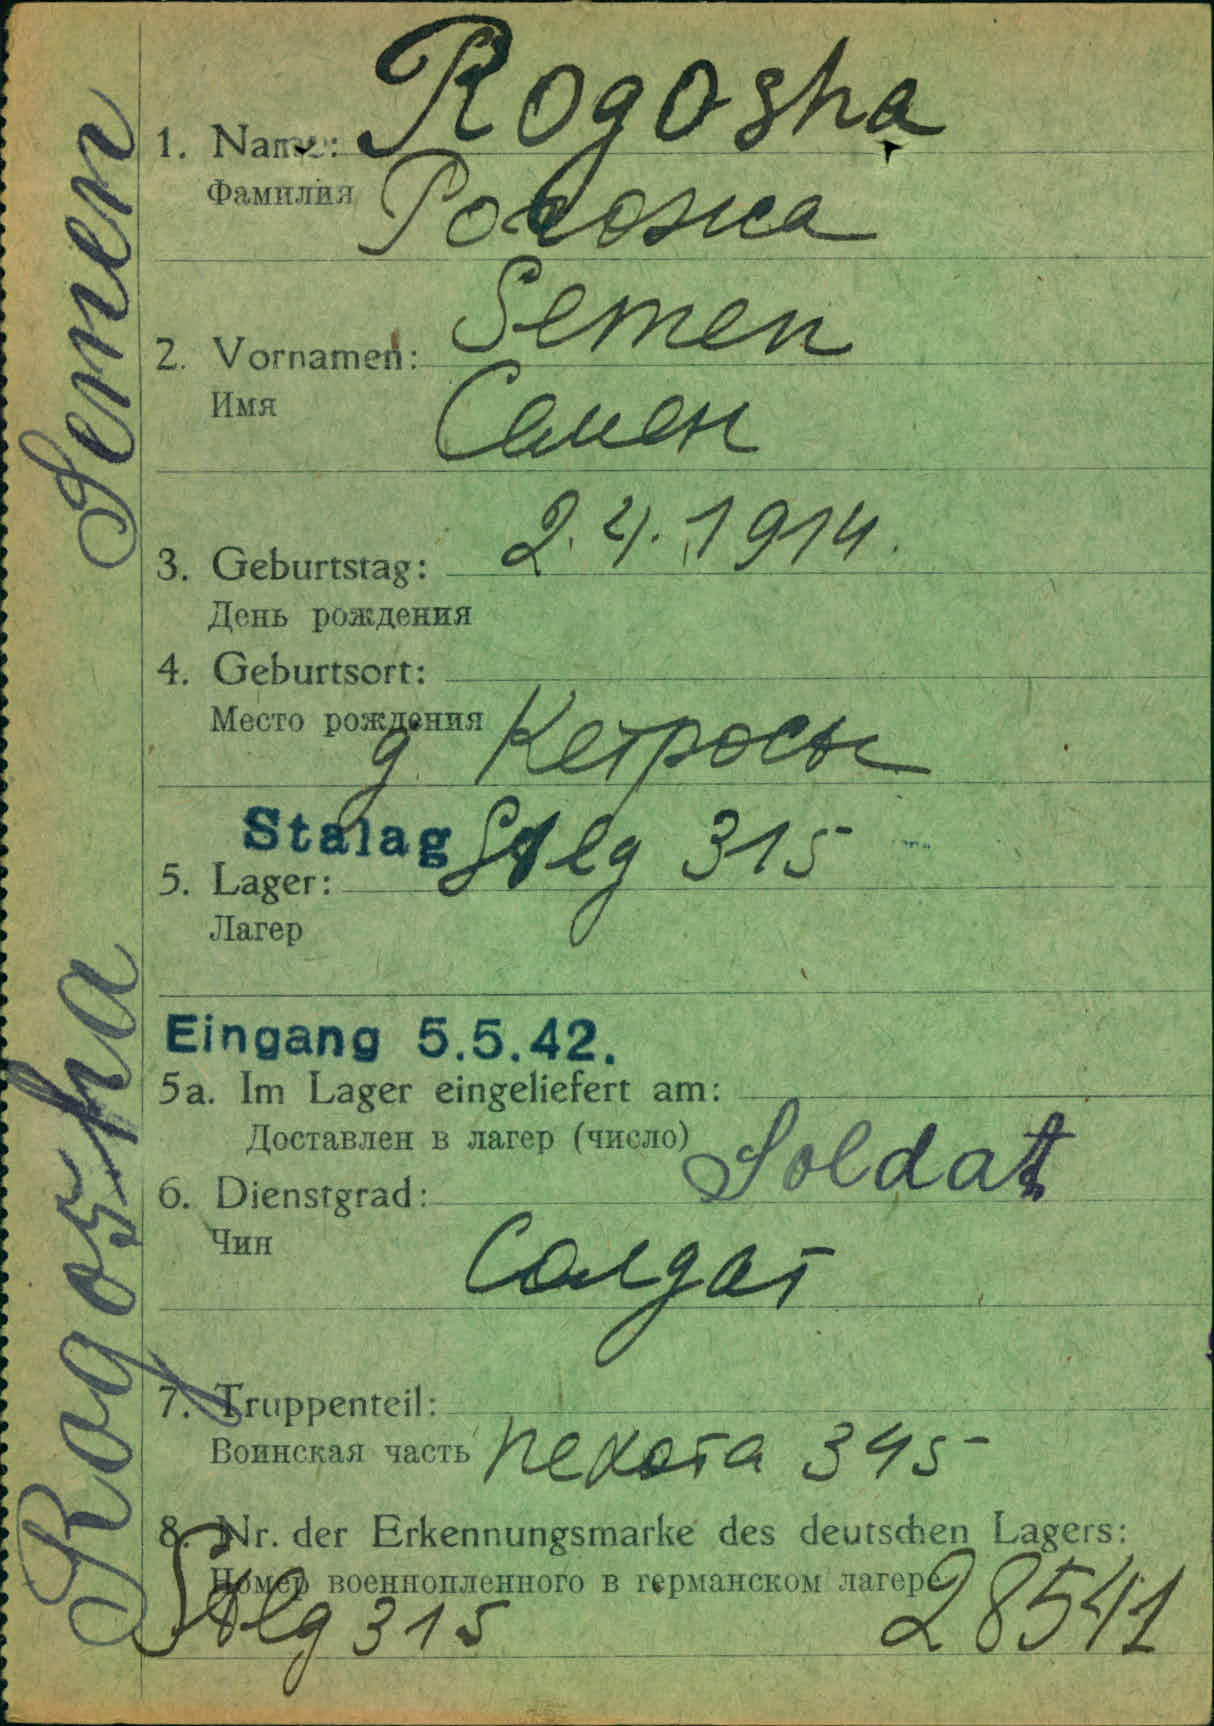 Rogosha
1. Name:
Фамилия Рогожа
Semen
2. Vornamen:
Имя Семен
3. Geburtstag: 2.4.1914.
День рождения
4. Geburtsort:
Место рождения
д. Кетросы
Stalag Stlg 315
5. Lager:
Лагер
Eingang 5.5.42.
5a. Im Lager eingeliefert am:
Доставлен в лагер (число)
6. Dienstgrad: Soldat
Чин Солдат
7. Truppenteil:
Воинская часть пехота 345
8. Nr. der Erkennungsmarke des deutschen Lagers:
Номер военнопленного в германском лагере
Stlg 315 28541
Rogosha Semen